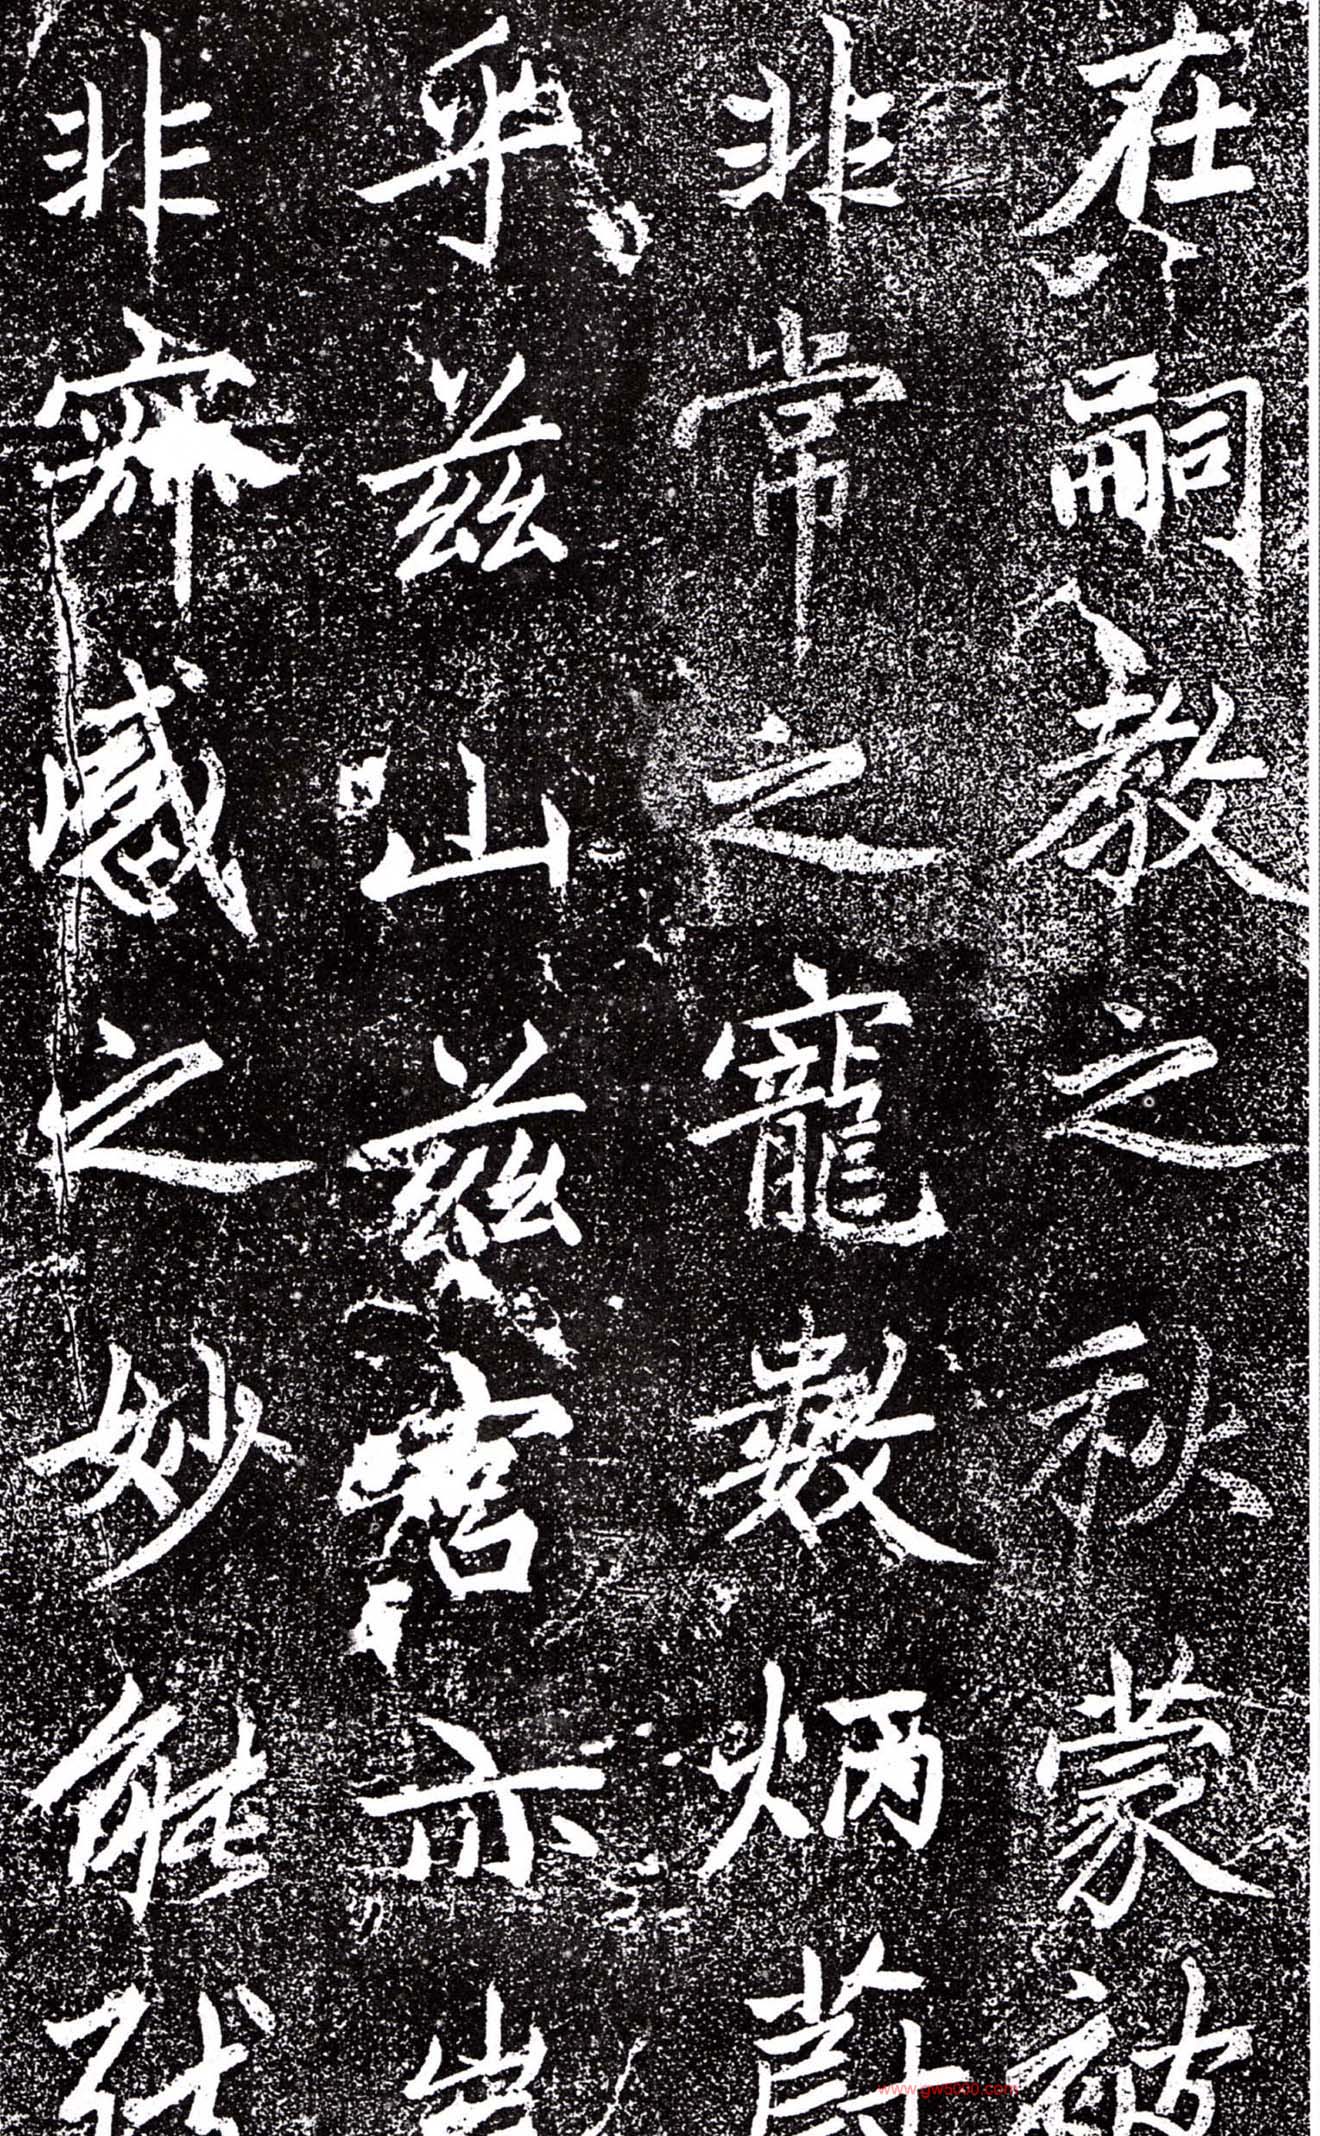 在嗣教之秋蒙被
非常之寵數炳蔚
乎茲山茲宮亦豈
非寂感之妙能
www.gw5000.com